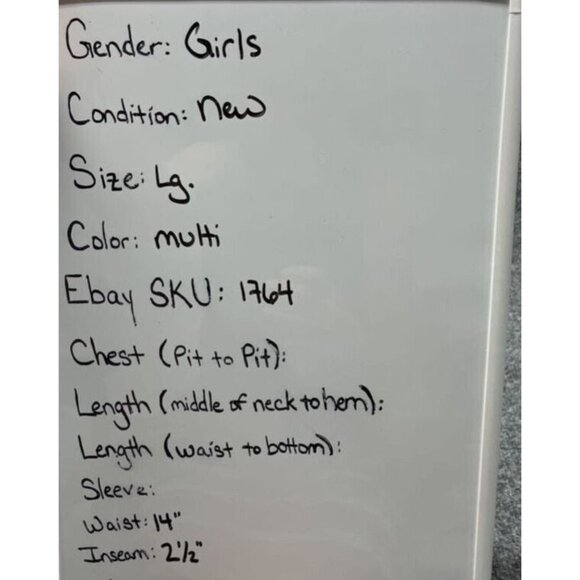 Gender: Girls
Condition: new
Size: Lg.
Color: multi
Ebay SKU: 1764
Chest (Pit to Pit):
Length (middle of neck to hem):
Length (waist to bottom):
Sleeve:
Waist: 14"
Inseam: 2½"